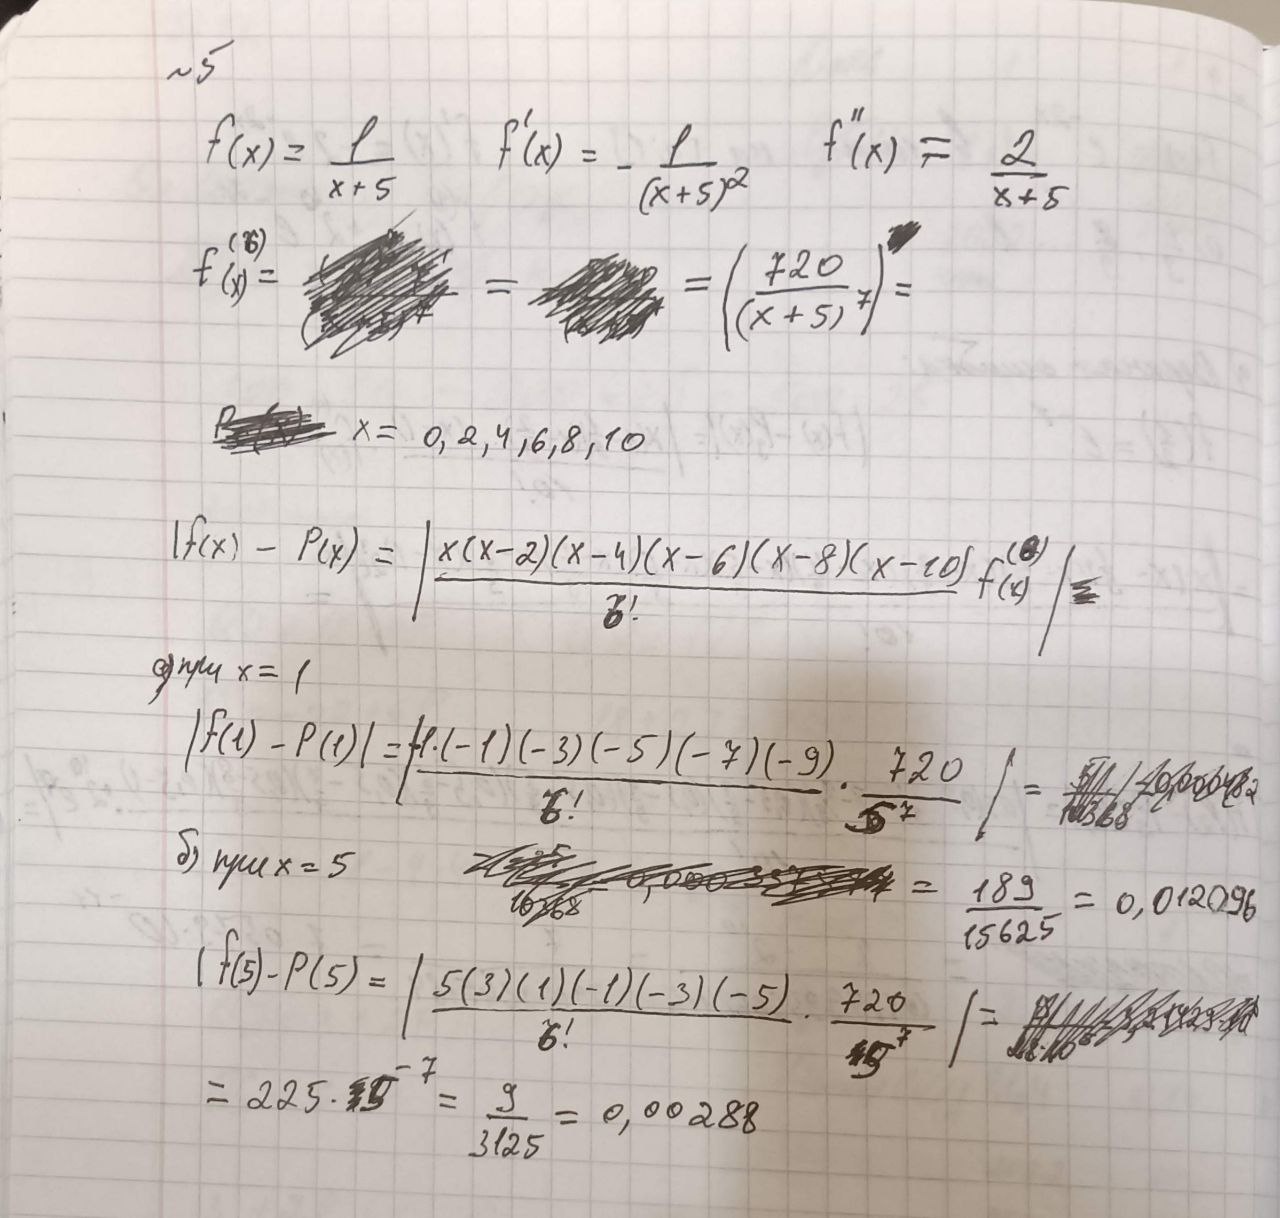 ~5
f(x) = 1/(x+5) f'(x) = - 1/(x+5)^2 f''(x) = 2/(x+5)
f^(6)(x) = = = (720/(x+5)^7) =
x = 0, 2, 4, 6, 8, 10
|f(x) - P(x) = |x(x-2)(x-4)(x-6)(x-8)(x-10)/6! f^(6)(x)| =
а) при x = 1
|f(1) - P(1)| = |1·(-1)(-3)(-5)(-7)(-9)/6! · 720/5^7| =
б) при x = 5 = 189/15625 = 0,012096
|f(5) - P(5) = |5(3)(1)(-1)(-3)(-5)/6! · 720/5^7| =
= 225·5^-7 = 9/3125 = 0,00288